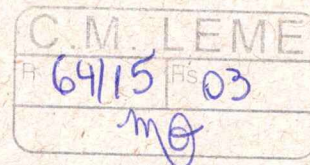 C.M. LEME
P. 64/15 Fls 03